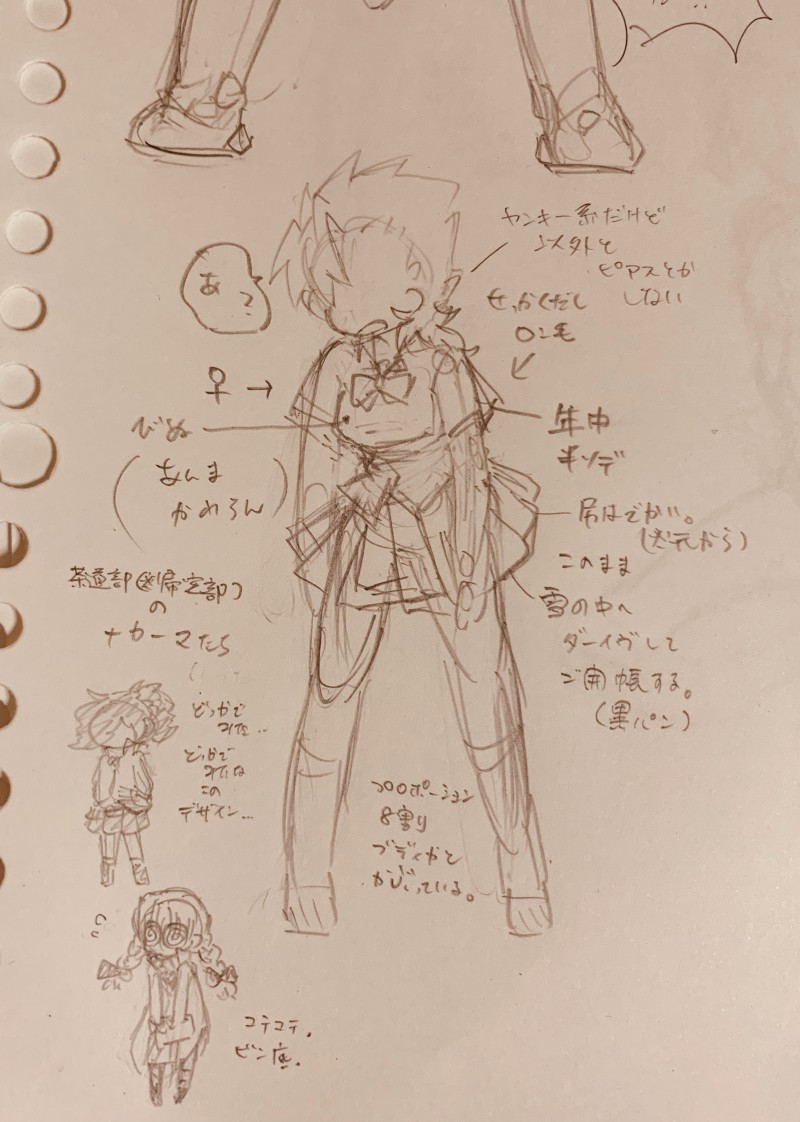 ヤンキー系だけど
以外と
ピアスとか
しない
せっかくだし
ロン毛
あ?
♀→
びぬ
(あんま
かわらん)
年中
半ソデ
尻はでかい。
(次元から)
このまま
雪の中へ
ダーイヴして
ご開帳する。
(黒パン)
茶道部(帰宅部)
の
ナカーマたち
どっかで
みた..
どっかで
みたな
この
デザイン...
プロポーション
8割り
ブディカと
かぶっている。
コテコテ.
ビン底.